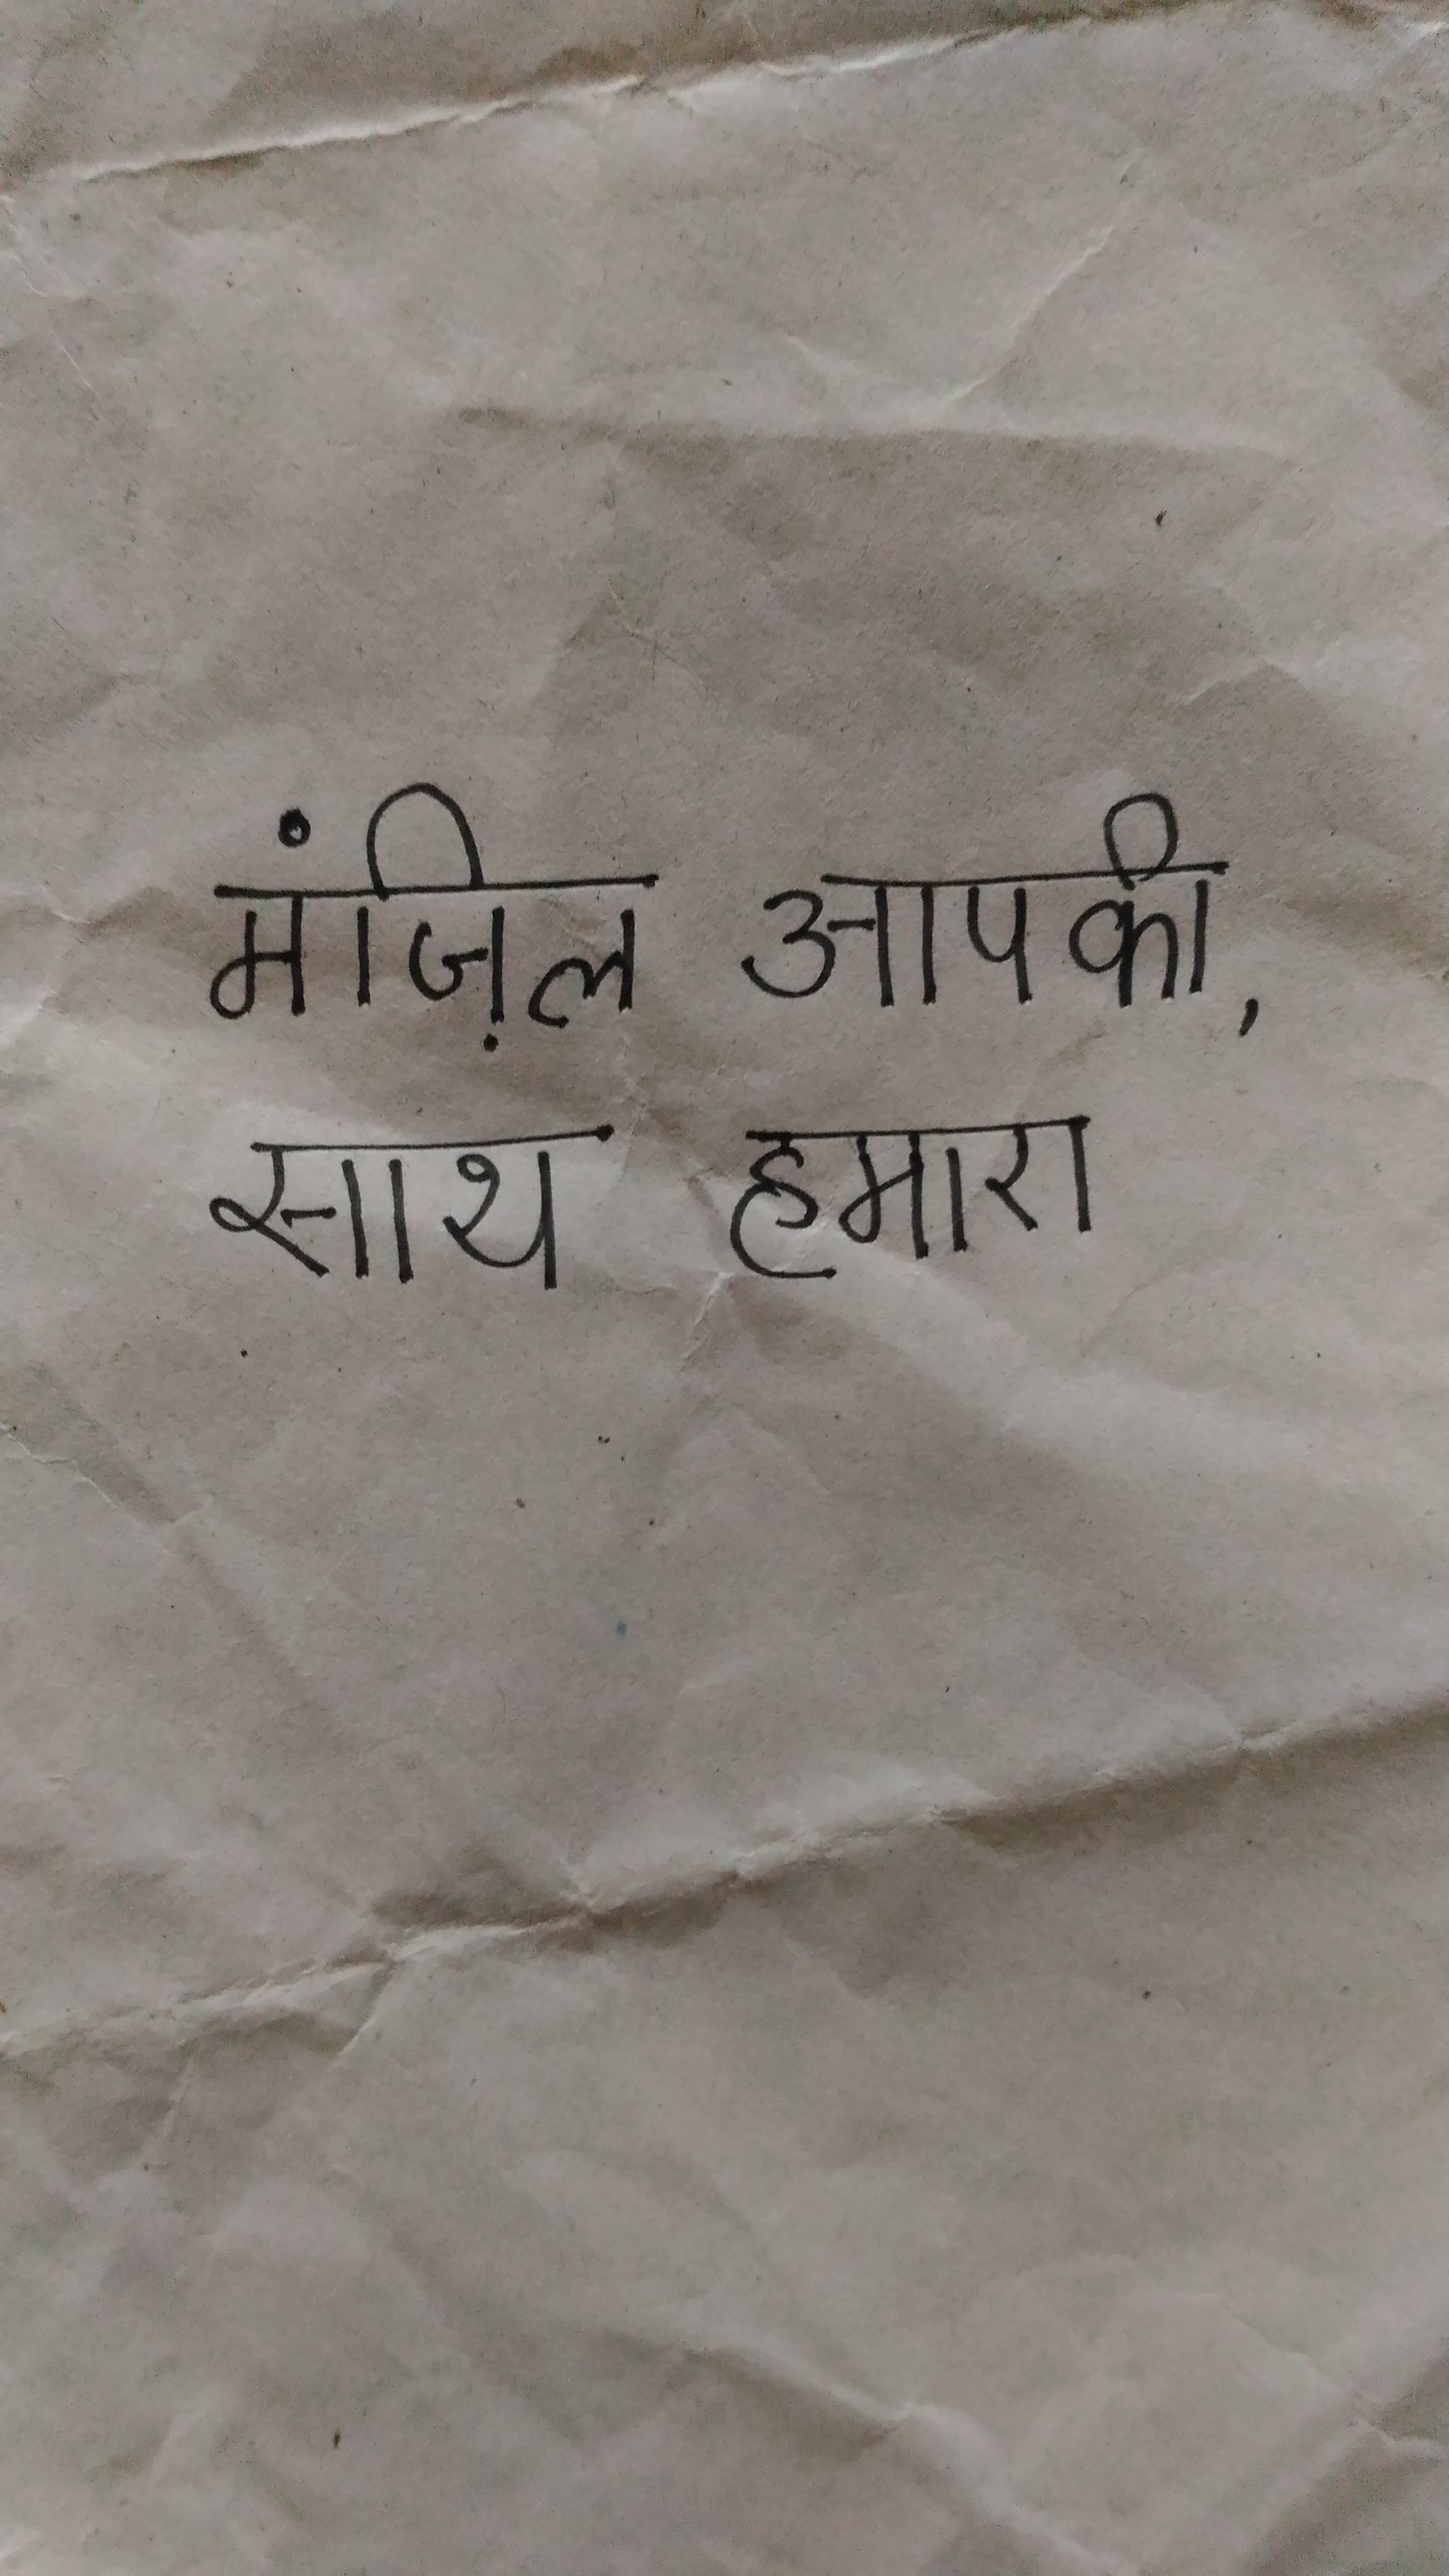 मंज़िल आपकी,
साथ हमारा